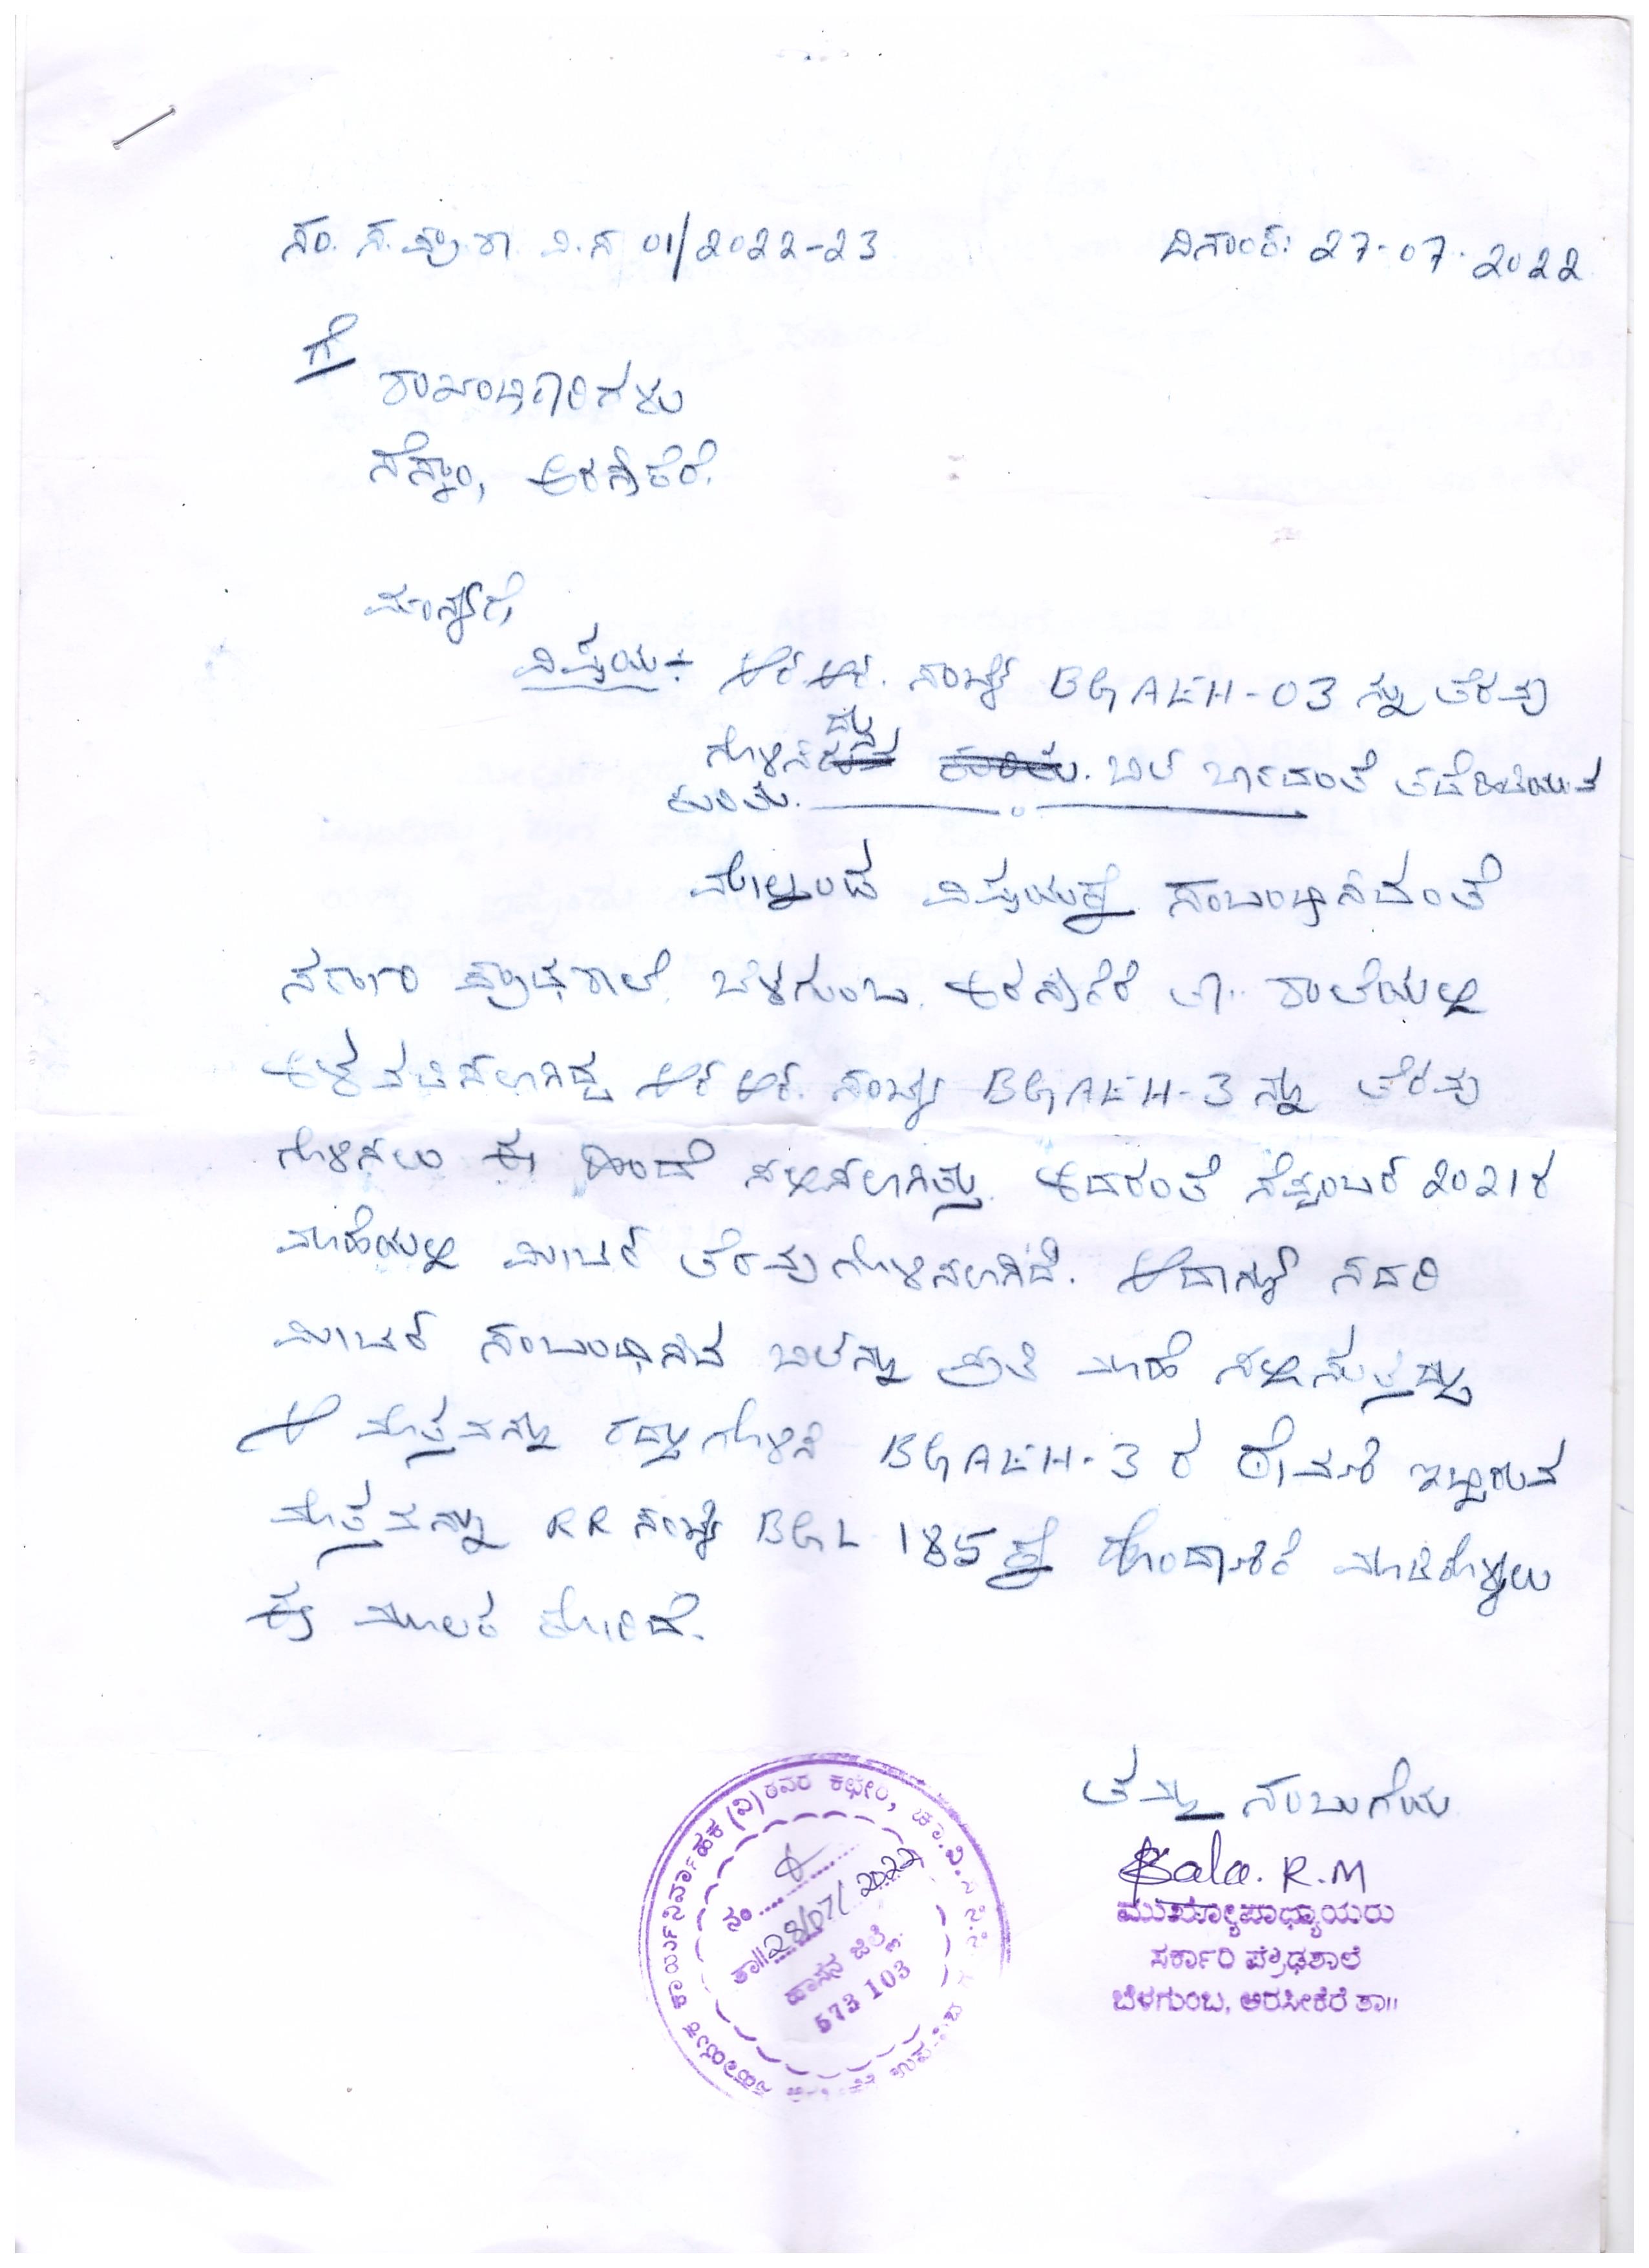 ಸಂ. ಸ. ಪ್ರೌ. ಶಾ. ವಿ.ಸ 01/2022-23
ದಿನಾಂಕ: 27-07-2022
ಗೆ
ಕಾರ್ಯಾಧಿಕಾರಿಗಳು
ಸೆಸ್ಕಾಂ, ಅರಸೀಕೆರೆ.
ಮಾನ್ಯರೆ,
ವಿಷಯ:- ಆರ್.ಆರ್. ಸಂಖ್ಯೆ BGAEH-03 ನ್ನು ತೆರವು
ಗೊಳಿಸಿದ್ದು ಬಿಲ್ ಬಾರದಂತೆ ತಡೆಹಿಡಿಯುವ
ಕುರಿತು.
ಮೇಲ್ಕಂಡ ವಿಷಯಕ್ಕೆ ಸಂಬಂಧಿಸಿದಂತೆ
ಸರ್ಕಾರಿ ಪ್ರೌಢಶಾಲೆ ಬೆಳಗುಂಬ. ಅರಸೀಕೆರೆ ತಾ.. ಶಾಲೆಯಲ್ಲಿ
ಅಳವಡಿಸಲಾಗಿದ್ದ ಆರ್ ಆರ್. ಸಂಖ್ಯೆ BGAEH-3 ನ್ನು ತೆರವು
ಗೊಳಿಸಲು ಈ ಹಿಂದೆ ಸಲ್ಲಿಸಲಾಗಿತ್ತು. ಅದರಂತೆ ಸೆಪ್ಟಂಬರ್ 2021ರ
ಮಾಹೆಯಲ್ಲಿ ಮೀಟರ್ ತೆರವುಗೊಳಿಸಲಾಗಿದೆ. ಆದಾಗ್ಯೂ ಸದರಿ
ಮೀಟರ್ ಸಂಬಂಧಿಸಿದ ಬಿಲ್‌ನ್ನು ಪ್ರತಿ ಮಾಹೆ ಸಲ್ಲಿಸುತ್ತಿದ್ದು
ಆ ಮೊತ್ತವನ್ನು ರದ್ದುಗೊಳಿಸಿ BGAEH-3 ರ ಠೇವಣಿ ಇಟ್ಟಿರುವ
ಮೊತ್ತವನ್ನು RR ಸಂಖ್ಯೆ BGL 185ಕ್ಕೆ ಹೊಂದಾಣಿಕೆ ಮಾಡಿಕೊಳ್ಳಲು
ಈ ಮೂಲಕ ಕೋರಿದೆ.
ತಮ್ಮ ನಂಬುಗೆಯ
Bala. R.M
ಮುಖ್ಯೋಪಾಧ್ಯಾಯರು
ಸರ್ಕಾರಿ ಪ್ರೌಢಶಾಲೆ
ಬೆಳಗುಂಬ, ಅರಸೀಕೆರೆ ತಾ॥
ಸಹಾಯಕ ಕಾರ್ಯನಿರ್ವಾಹಕ (ವಿ) ರವರ ಕಛೇರಿ, ಚಾ.ವಿ.ಸ.ನಿ.ನಿ
ನಂ
ತಾ॥ 28/07/2022
ಹಾಸನ ಜಿಲ್ಲೆ.
573 103